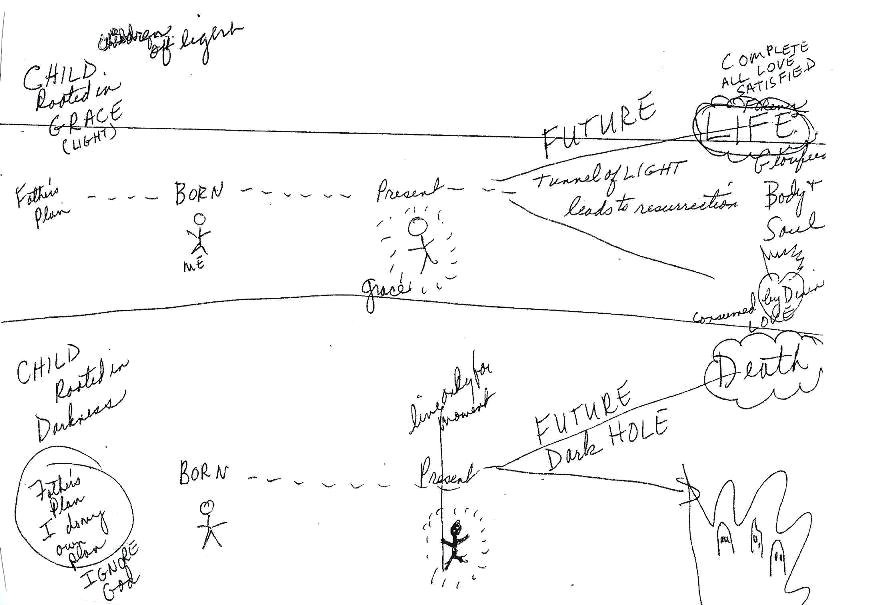 Children
of light
CHILD
Rooted in
GRACE
(LIGHT)
COMPLETE
ALL LOVE
SATISFIED
LIFE
FUTURE
Glorifies
Body +
Soul
Father's
Plan
BORN
ME
Present
grace
tunnel of LIGHT
leads to resurrection
consumed by Divin
LOVE
CHILD
Rooted in
Darkness
Father's
Plan
I do my
own
plan
IGNORE
God
BORN
live only for
moment
Present
FUTURE
Dark HOLE
Death